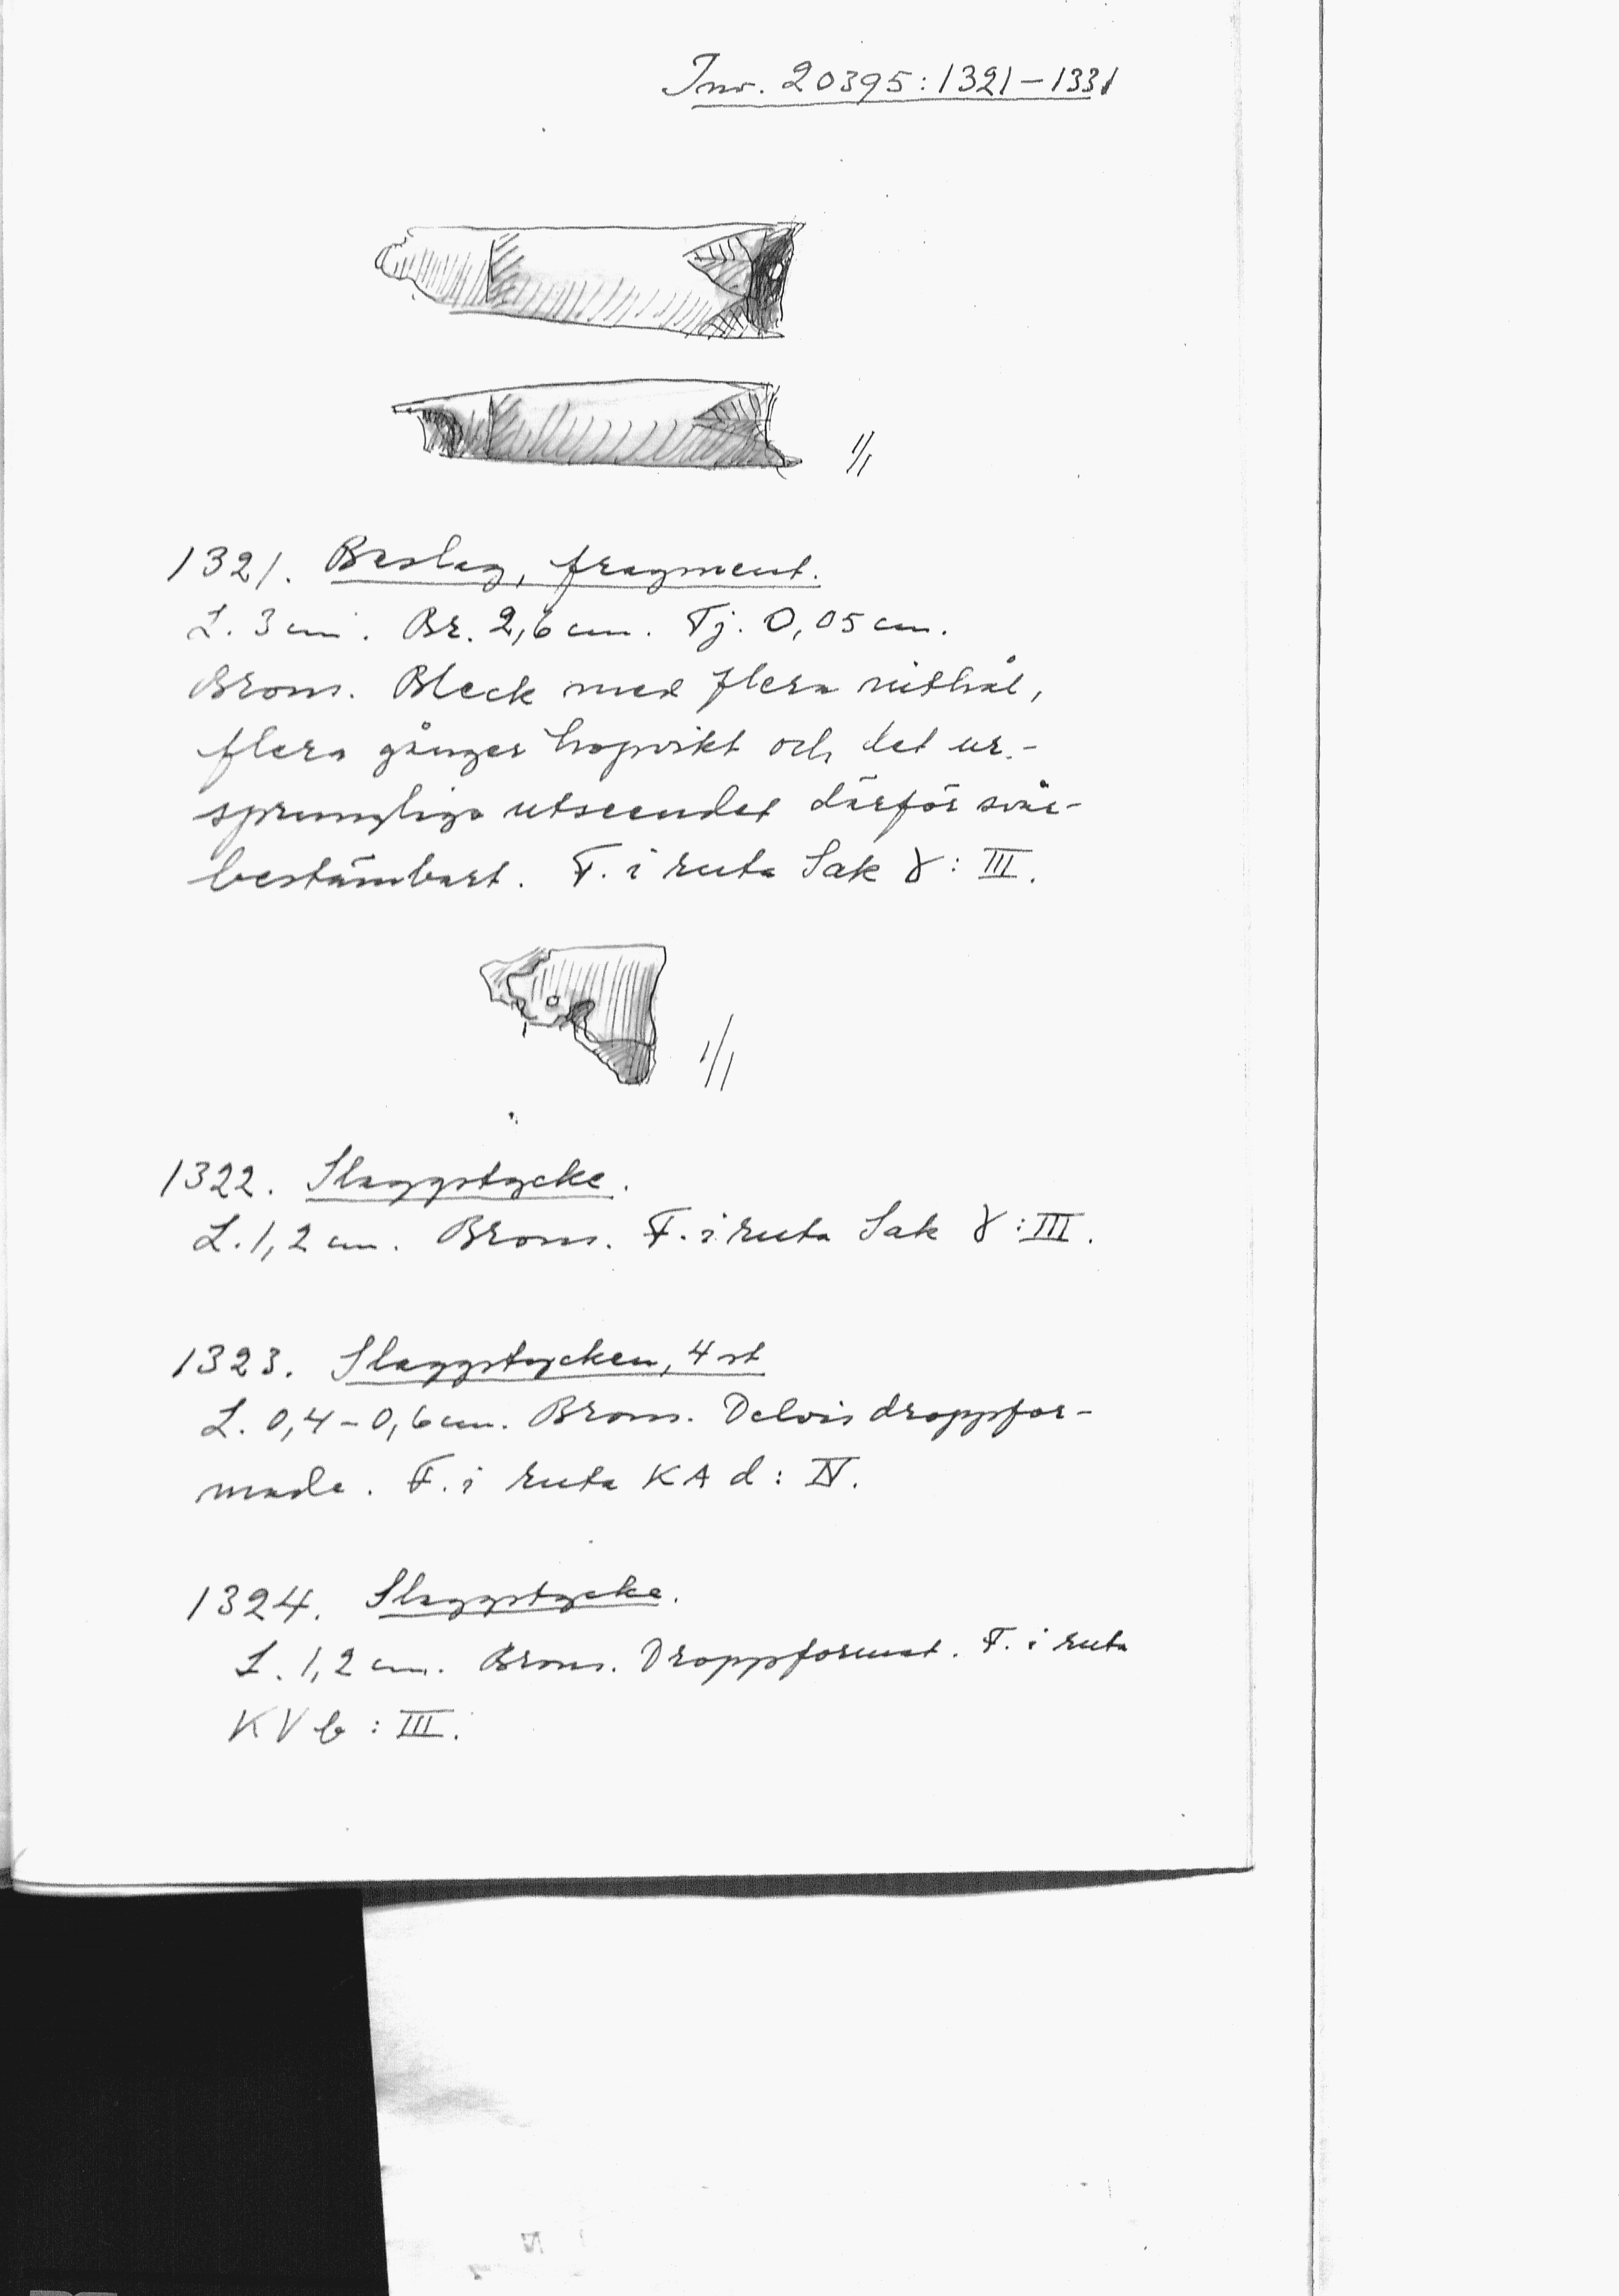 Inv. 20395:1321–1331
1/1
1321. Beslag, fragment.
L. 3 cm. Br. 2,6 cm. Tj. 0,05 cm.
Brons. Bleck med flera nithål,
flera gånger hopvikt och det ur-
sprungliga utseendet därför svår-
bestämbart. F. i ruta Sak γ: III.
1/1
1322. Slaggstycke.
L. 1,2 cm. Brons. F. i ruta Sak γ: III.
1323. Slaggstycken, 4 st
L. 0,4–0,6 cm. Brons. Delvis droppfor-
made. F. i ruta KA d: IV.
1324. Slaggstycke.
L. 1,2 cm. Brons. Droppformat. F. i ruta
KV b: III.